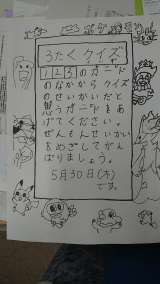 3たく クイズ
1 2 3 のカード
のなかからクイズ
のせいかいだと
思うカードをあ
げてください。
ぜんもんせいかい
をめざしてがん
ばりましょう。
5月30日(木)
です。